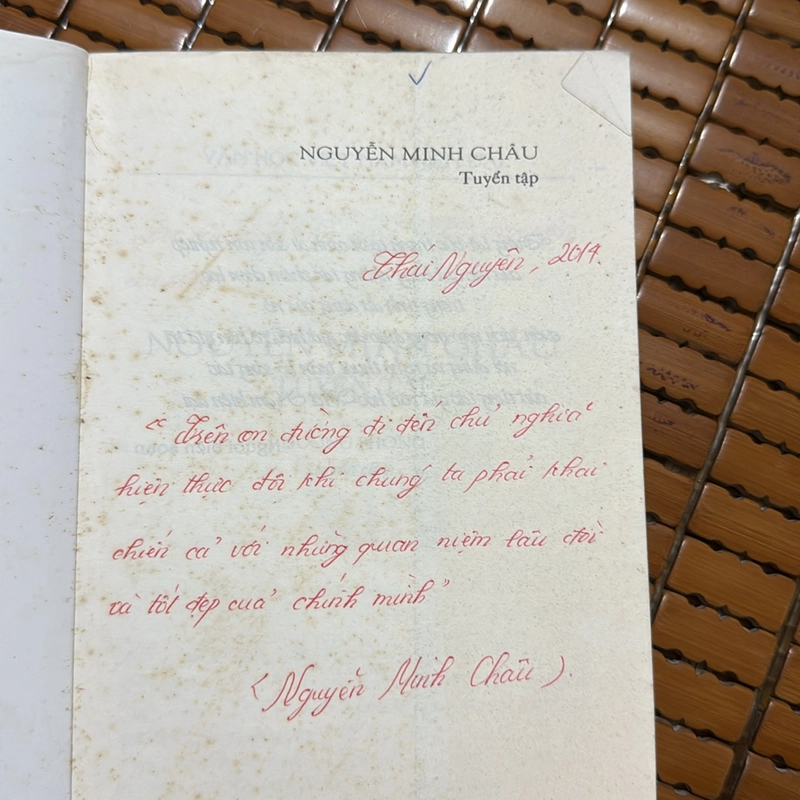 NGUYỄN MINH CHÂU
Tuyển tập
Thái Nguyên, 2014.
"Trên con đường đi đến chủ nghĩa
hiện thực đôi khi chúng ta phải khai
chiến cả với những quan niệm lâu đời
và tốt đẹp của chính mình"
(Nguyễn Minh Châu).